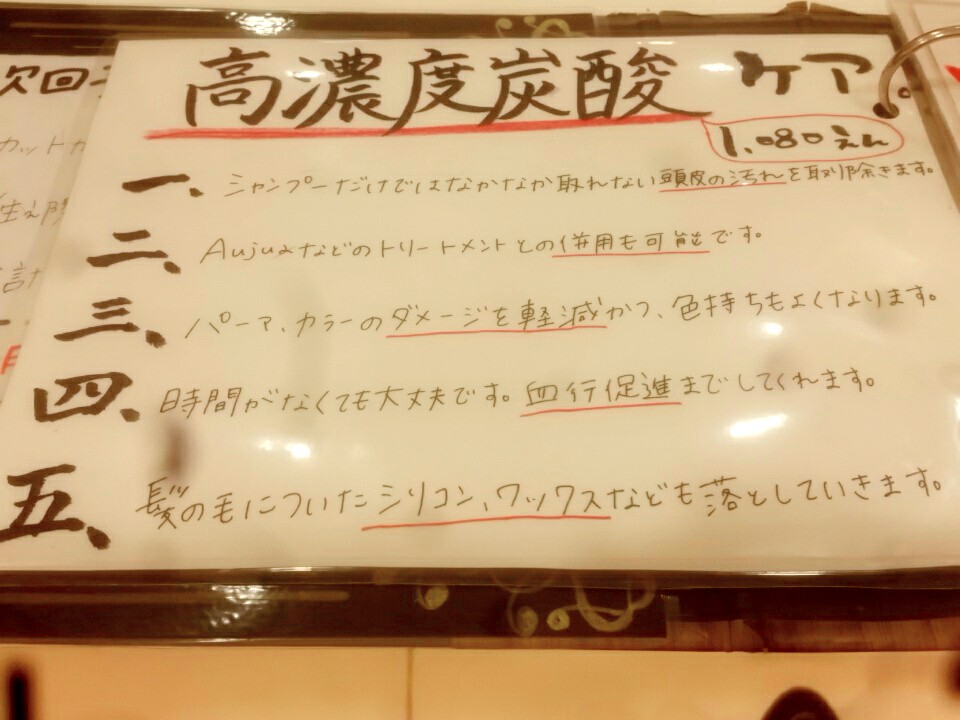 高濃度炭酸ケア。
1,080えん
一、シャンプーだけではなかなか取れない頭皮の汚れを取り除きます。
二、Aujuaなどのトリートメントとの併用も可能です。
三、パーマ、カラーのダメージを軽減かつ、色持ちもよくなります。
四、時間がなくても大丈夫です。血行促進までしてくれます。
五、髪の毛についたシリコン、ワックスなども落としていきます。
次回
カット